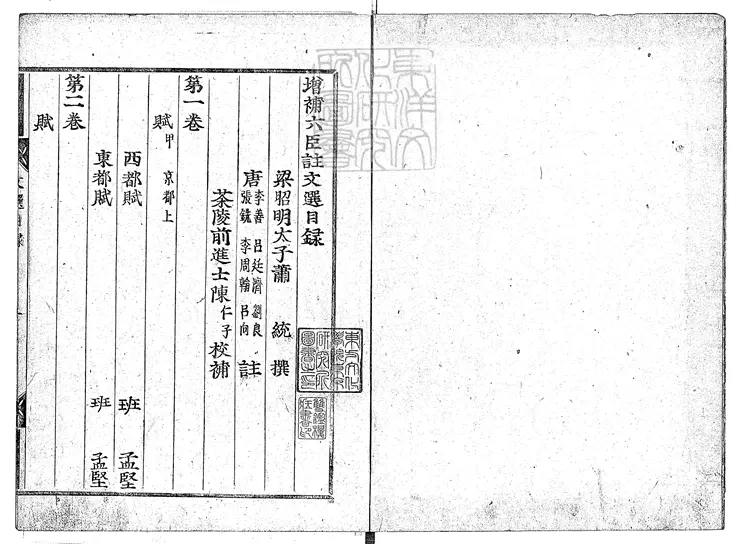 增補六臣註文選目録
梁昭明太子蕭 統 撰
唐 李善 呂延濟 劉良
張銑 李周翰 呂向 註
茶陵前進士陳仁子校補
第一卷
賦甲 京都上
西都賦 班 孟堅
東都賦 班 孟堅
第二卷
賦
文選目録
東方文化
研究所
圖書之印